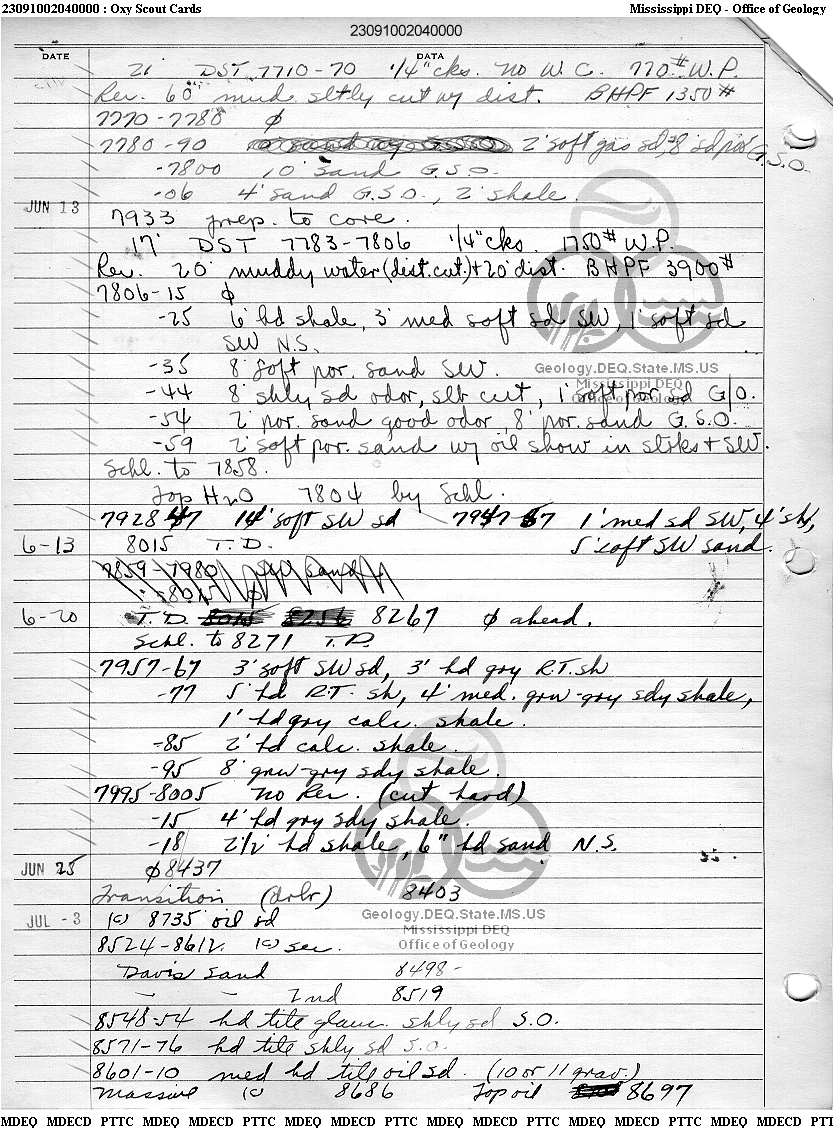 23091002040000 : Oxy Scout Cards Mississippi DEQ - Office of Geology
23091002040000
DATE DATA
21' DST 7710-70 1/4" cks. No W.C. 770# W.P.
Rev. 60' mud sltly cut w/ dist. BHPF 1350#
7770-7780 ϕ
7780-90 2' soft gas sd, 8' sd por G.S.O.
-7800 10' sand G.S.O.
-06 4' sand G.S.O., 2' shale.
JUN 13
7933 prep. to core.
17' DST 7783-7806 1/4" cks. 1750# W.P.
Rev. 20' muddy water (dist. cut.) + 20' dist. BHPF 3900#
7806-15 ϕ
-25 6' hd shale, 3' med soft sd SW, 1' soft sd
SW N.S.
-35 8' soft por. sand SW.
Geology.DEQ.State.MS.US
Mississippi DEQ
Office of Geology
-44 8' shly sd odor, slt cut, 1' soft por sd G/O.
-54 2' por. sand good odor, 8' por. sand G.S.O.
-59 2' soft por. sand w/ oil show in stks + SW.
Schl. to 7858.
Top H2O 7804 by Schl.
7928-47 14' soft SW sd 7947-57 1' med sd SW, 4' sh,
5' soft SW sand.
6-13 8015 T.D.
7859-7980
-8015 ϕ
6-20 T.D. 8015 8256 8267 ϕ ahead.
Schl. to 8271 T.D.
7957-67 3' soft SW sd, 3' hd gry R.T. sh
-77 5' hd R.T. sh, 4' med. grn-gry sdy shale,
1' hd gry calc. shale.
-85 2' hd calc. shale.
-95 8' grn-gry sdy shale.
7995-8005 No Rec. (cut hard)
-15 4' hd gry sdy shale.
-18 2 1/2' hd shale, 6" hd sand N.S.
JUN 25 ϕ 8437
Transition (drlr) 8403
Geology.DEQ.State.MS.US
Mississippi DEQ
Office of Geology
JUL -3 (c) 8735 oil sd
8524-8612 (c) sec.
Davis Sand 8498-
- - 2nd 8519
8548-54 hd tite glauc. shly sd S.O.
8571-76 hd tite shly sd S.O.
8601-10 med hd tite oil sd. (10 or 11 grav.)
Massive (c) 8686 Top oil 8697
MDEQ MDECD PTTC MDEQ MDECD PTTC MDEQ MDECD PTTC MDEQ MDECD PTTC MDEQ MDECD PTTC MDEQ MDECD PTT